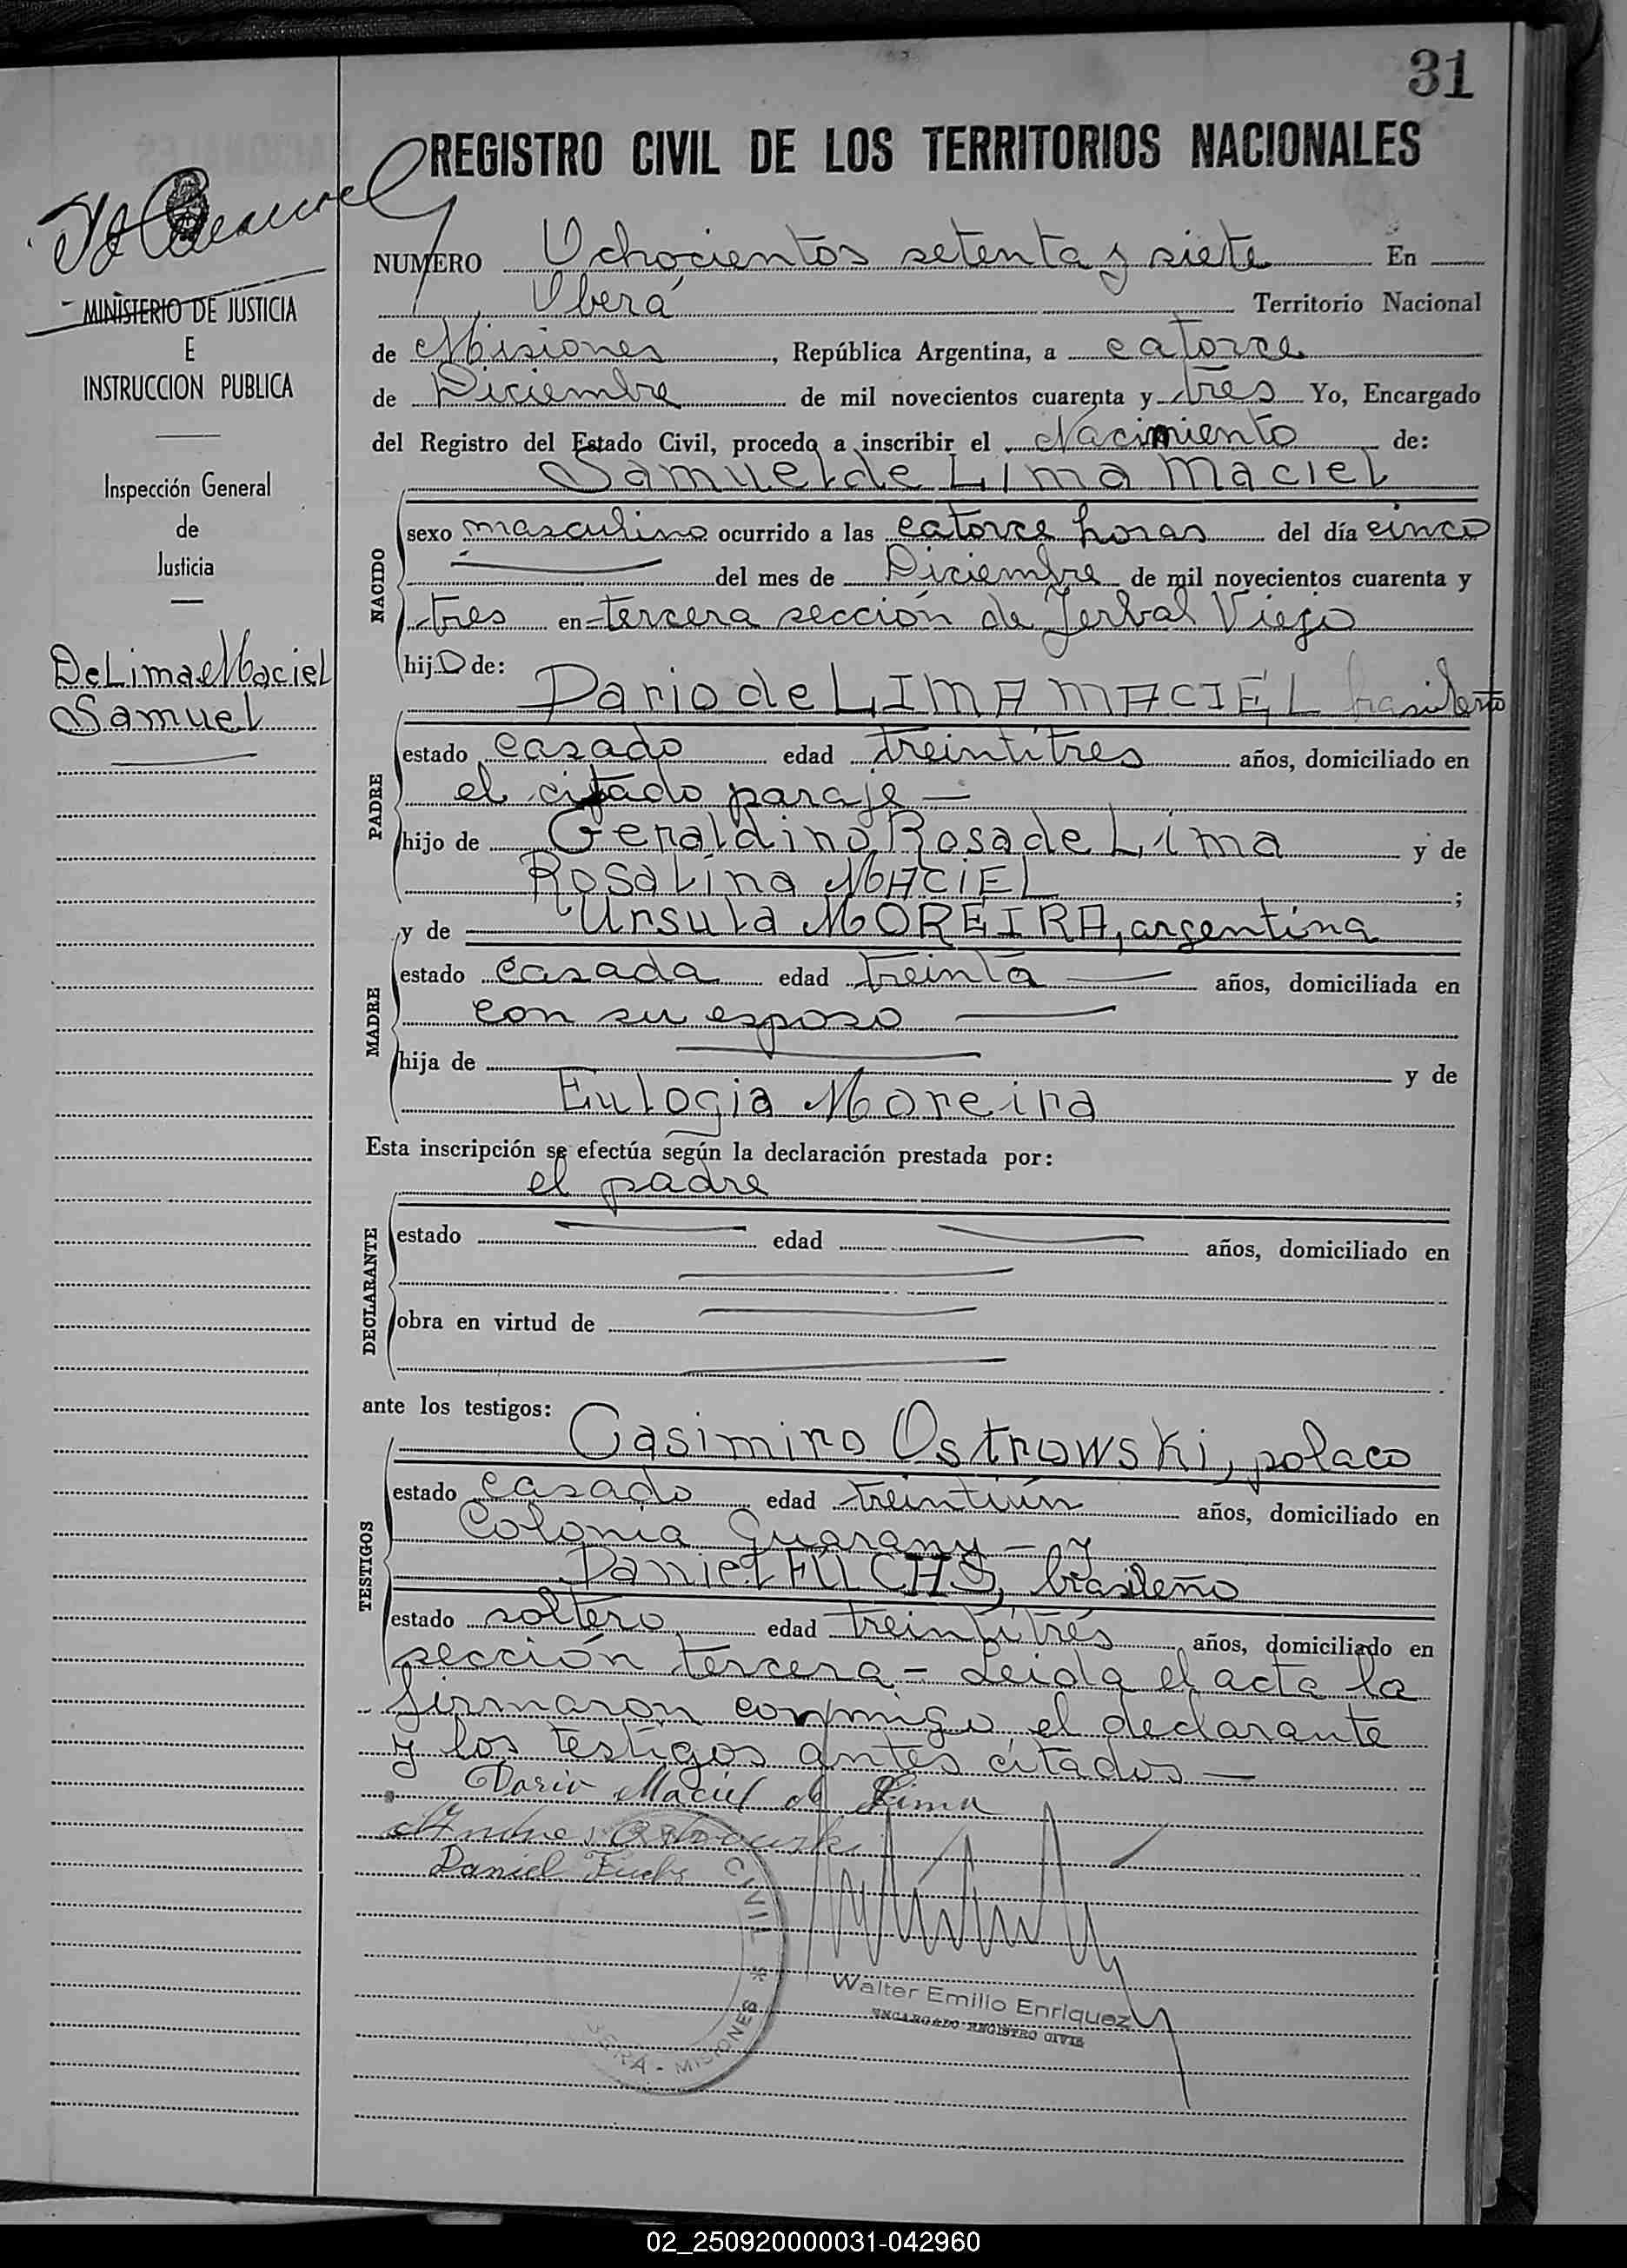 31
REGISTRO CIVIL DE LOS TERRITORIOS NACIONALES
MINISTERIO DE JUSTICIA
E
INSTRUCCION PUBLICA
Inspección General
de
Justicia
De Lima Maciel
Samuel
NUMERO Ochocientos setenta y siete En
Oberá Territorio Nacional
de Misiones, República Argentina, a catorce
de Diciembre de mil novecientos cuarenta y tres Yo, Encargado
del Registro del Estado Civil, procedo a inscribir el Nacimiento de:
Samuel de Lima Maciel
NACIDO
sexo masculino ocurrido a las catorce horas del día cinco
del mes de Diciembre de mil novecientos cuarenta y
tres en tercera sección de Yerbal Viejo
hijo de:
Dario de LIMA MACIEL brasileño
PADRE
estado casado edad treintitres años, domiciliado en
el citado paraje —
hijo de Geraldino Rosa de Lima y de
Rosalina MACIEL ;
y de Ursula MOREIRA, argentina
MADRE
estado casada edad treinta años, domiciliada en
con su esposo
hija de y de
Eulogia Moreira
Esta inscripción se efectúa según la declaración prestada por:
el padre
DECLARANTE
estado edad años, domiciliado en
obra en virtud de
ante los testigos:
Casimiro Ostrowski, polaco
TESTIGOS
estado casado edad treintiún años, domiciliado en
Colonia Guarany — y
Daniel FUCHS, brasileño
estado soltero edad treintitrés años, domiciliado en
sección tercera = Leida el acta la
firmaron conmigo el declarante
y los testigos antes citados —
Dario Maciel de Lima
Daniel Fuchs
CIVIL * OBERÁ - MISIONES
Walter Emilio Enriquez
ENCARGADO REGISTRO CIVIL
02_250920000031-042960